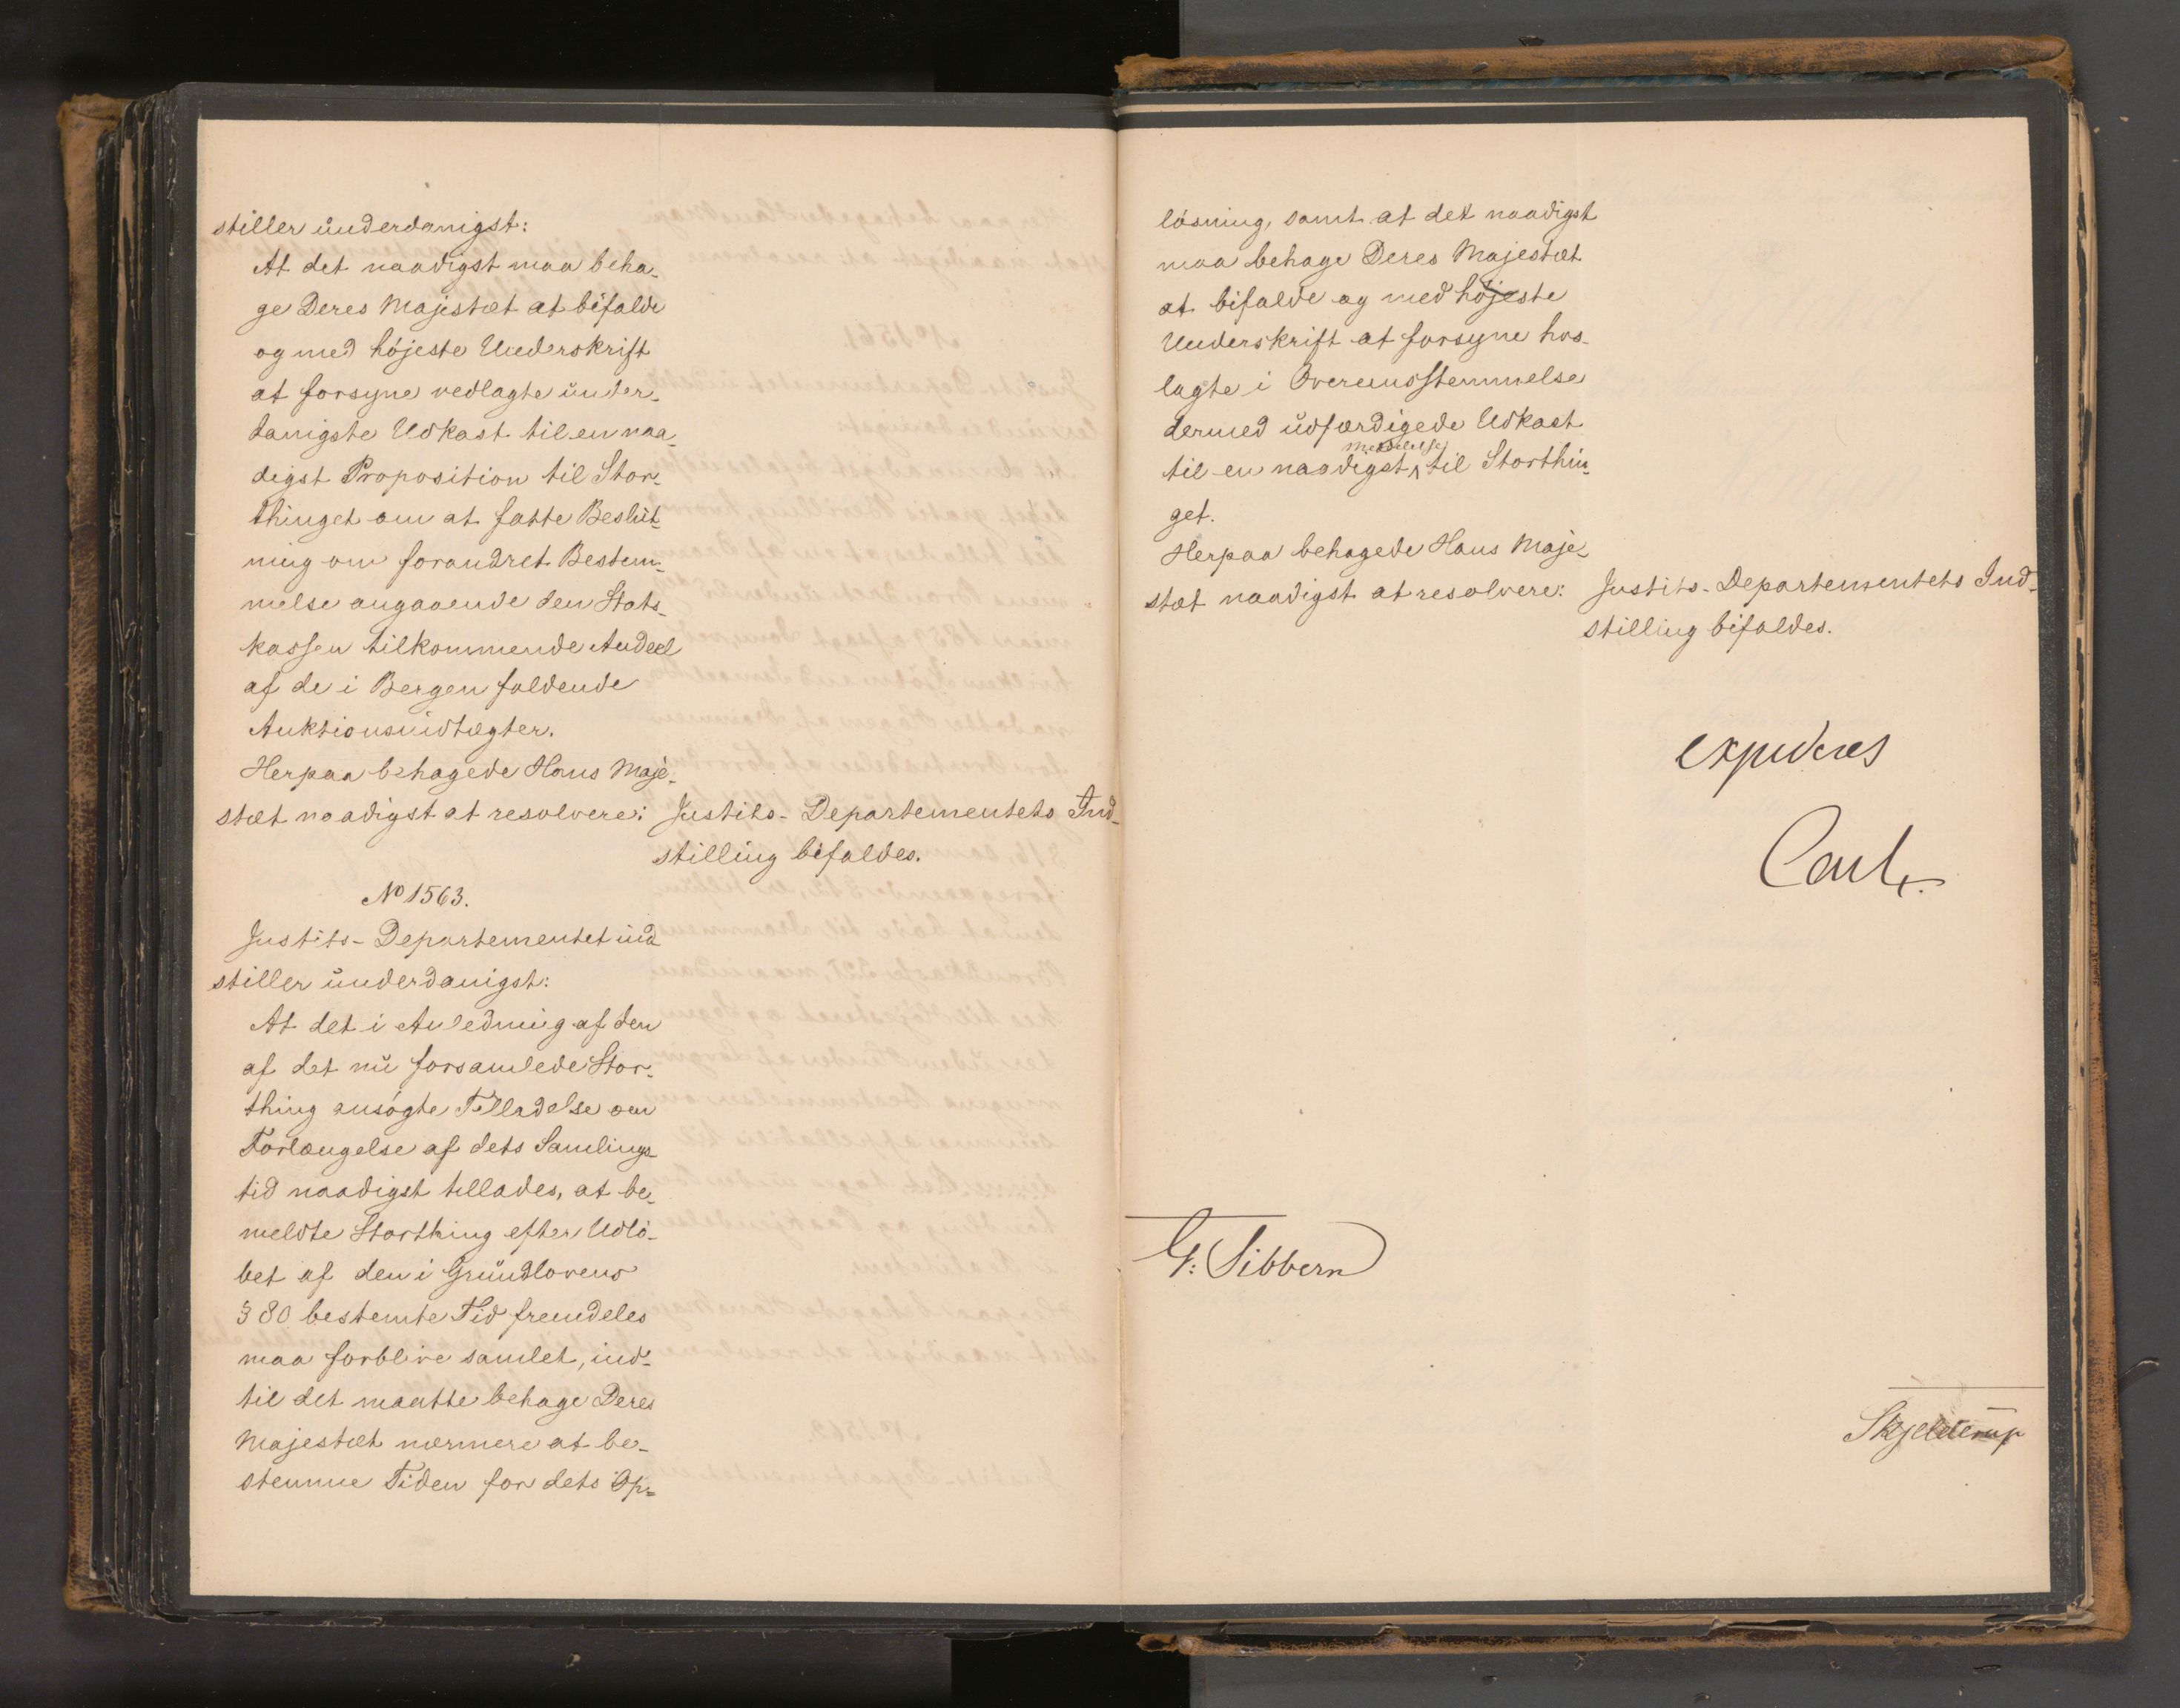 stiller underdanigst:
At det naadigst maa beha-
ge Deres Majestæt at bifalde
og med højeste Underskrift
at forsyne vedlagte under-
danigste Udkast til en naa-
digst Proposition til Stor-
thinget om at fatte Beslut-
ning om forandret Bestem-
melse angaaende den Stats-
kassen tilkommende Andeel
af de i Bergen faldende
Auktionsindtægter.
Herpaa behagede Hans Maje-
stæt naadigst at resolvere: Justits-Departementets Ind-
stilling bifaldes.
No 1563.
Justits-Departementet ind
stiller underdanigst:
At det i Anledning af den
af det nu forsamlede Stor-
thing ansøgte Tilladelse om
Forlængelse af dets Samlings-
tid naadigst tillades, at be-
meldte Storthing efter Udlö-
bet af den i Grundlovens
§ 80 bestemte Tid fremdeles
maa forblive samlet, ind-
til det maatte behage Deres
Majestæt nærmere at be-
stemme Tiden for dets Op-
lösning, samt at det naadigst
maa behage Deres Majestæt
at bifalde og med höjeste
Underskrift at forsyne hos-
lagte i Overeensstemmelse
dermed udfærdigede Udkast
til en naadigst meddelelse til Storthin-
get.
Herpaa behagede Hans Maje-
stæt naadigst at resolvere: Justits-Departementets Ind-
stilling bifaldes.
expederes
Carl.
G. Sibbern
Skjelderup